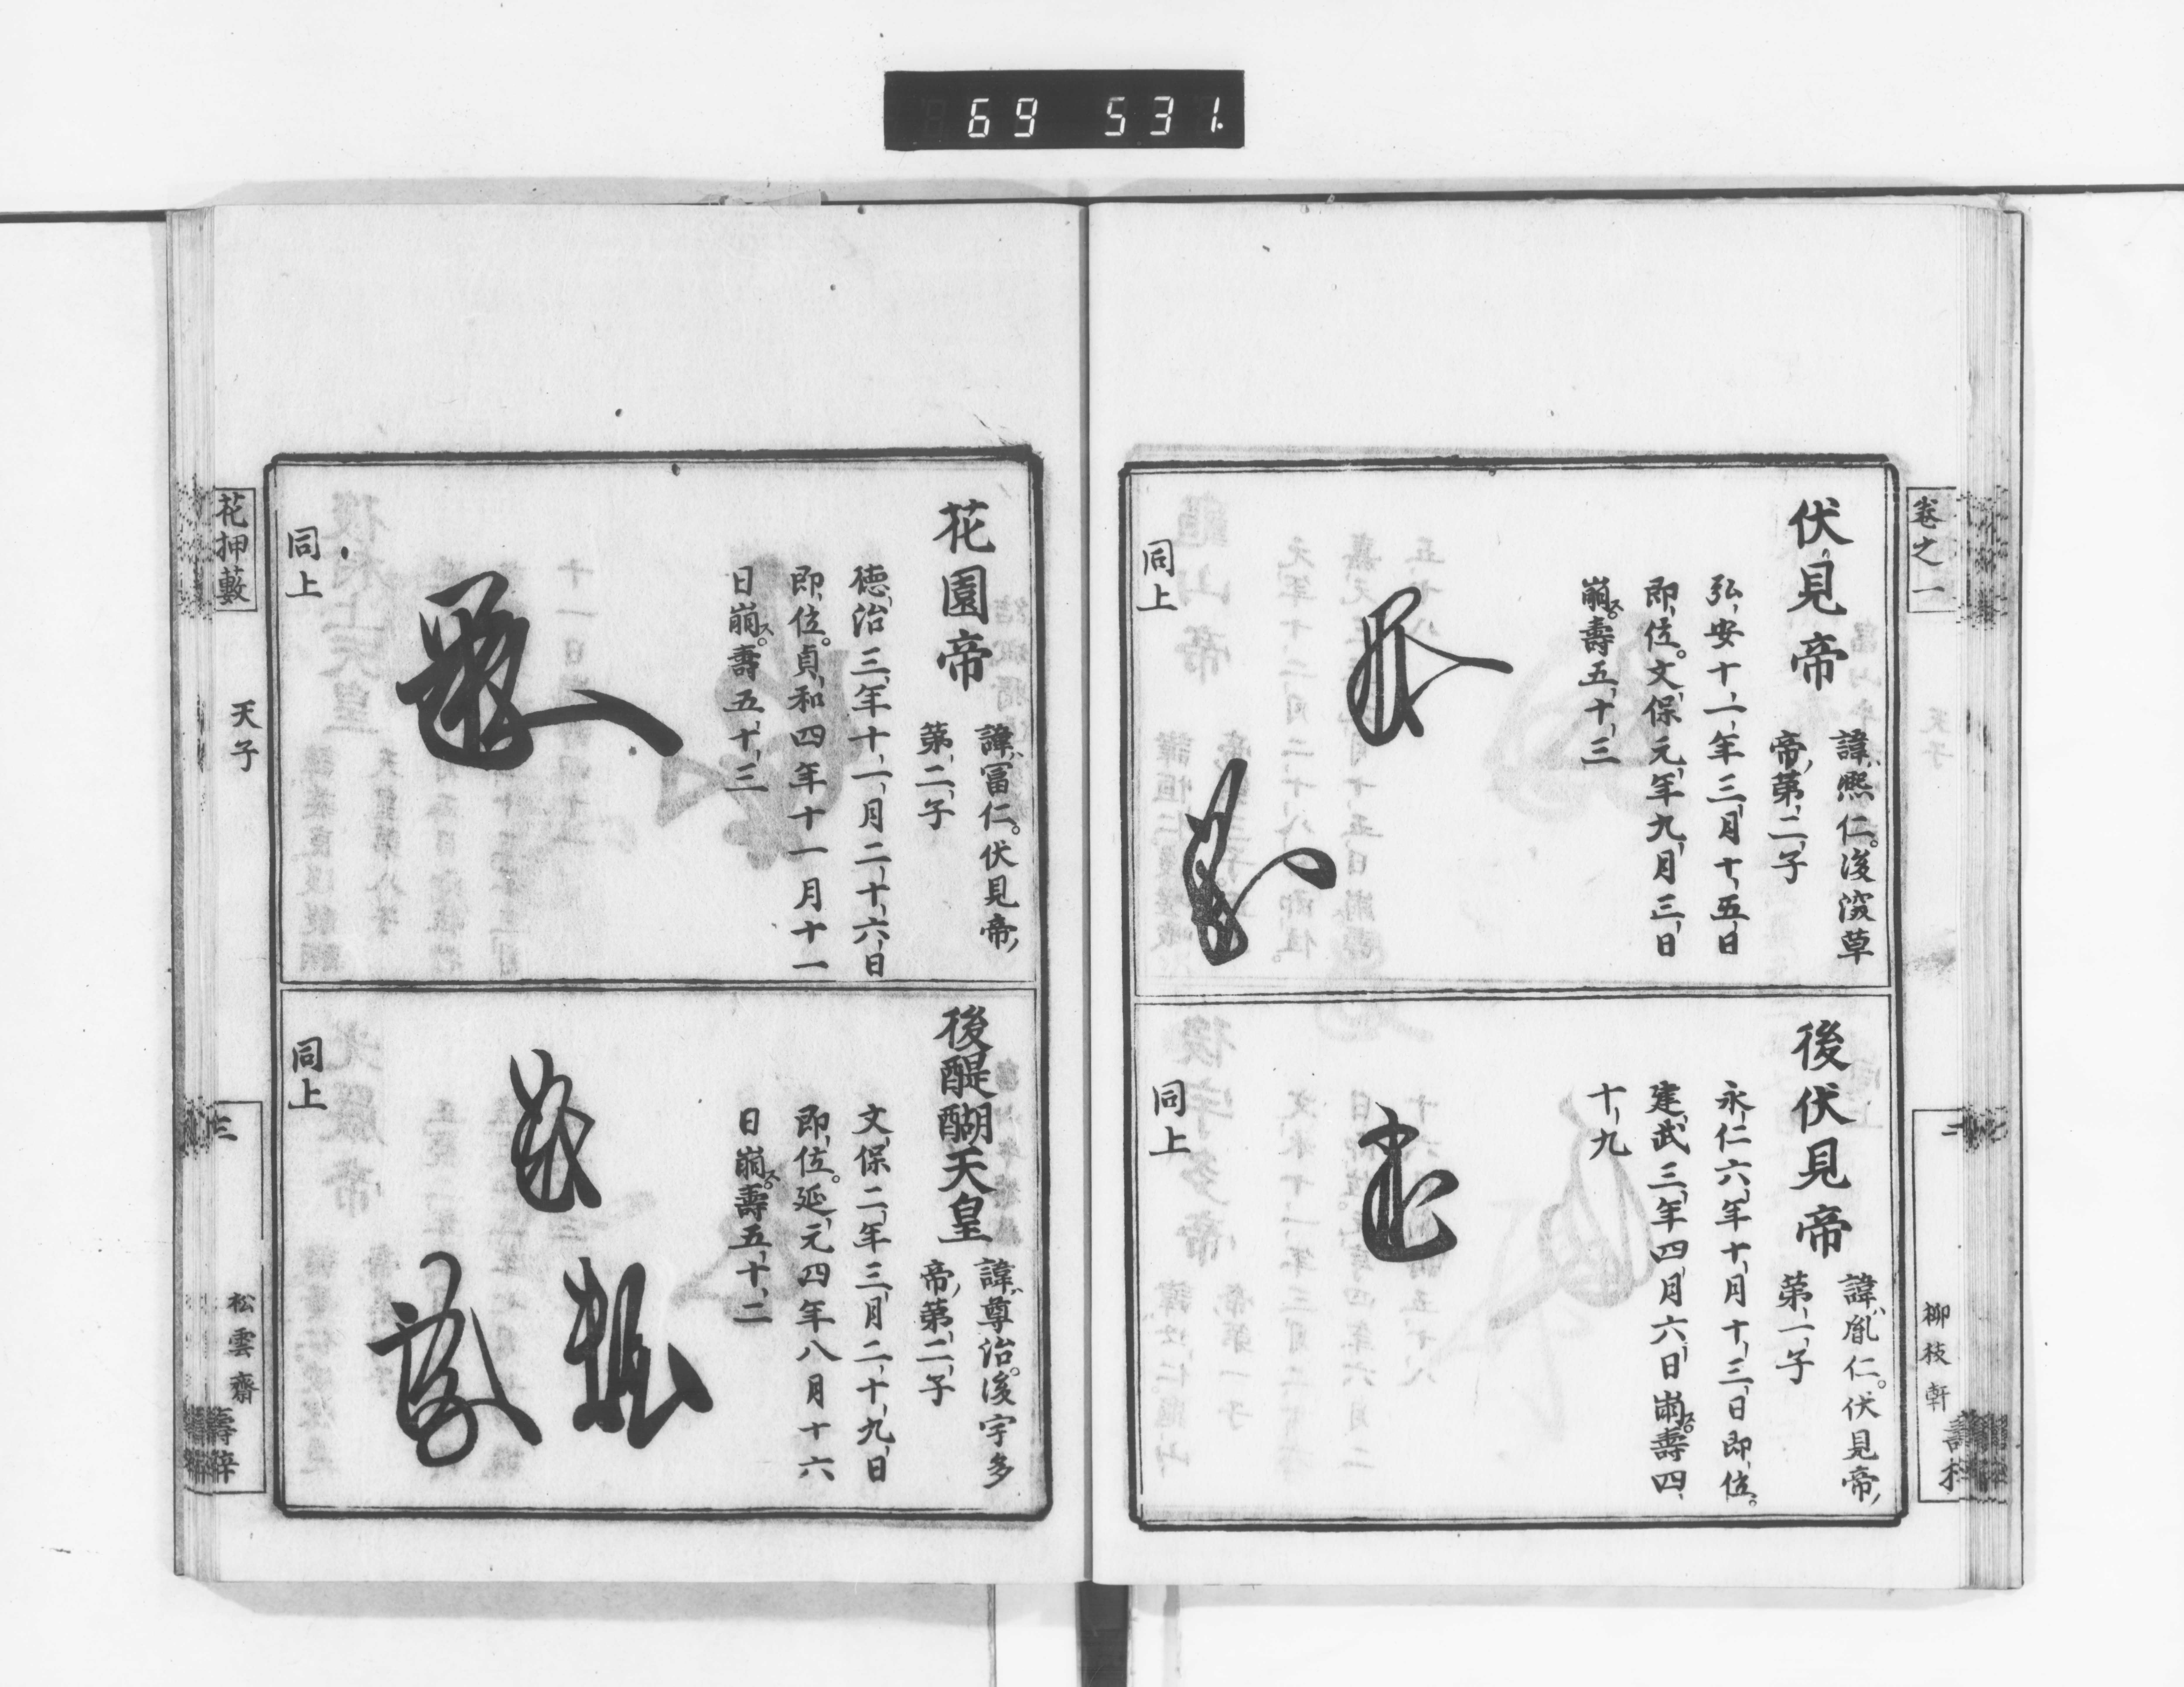 69 531.
卷之一
伏見帝
諱熈仁。後深草
帝第二子
弘安十一年三月十五日
即位。文保元年九月三日
崩。壽五十三
同上
後伏見帝
諱胤仁。伏見帝
第一子
永仁六年十月十三日即位。
建武三年四月六日崩。壽四
十九
同上
二
柳枝軒
花園帝
諱冨仁。伏見帝
第二子
德治三年十一月二十六日
即位。貞和四年十一月十一
日崩。壽五十三
同上
後醍醐天皇
諱尊治。後宇多
帝第二子
文保二年三月二十九日
即位。延元四年八月十六
日崩。壽五十二
同上
花押藪
天子
三
松雲齋
壽梓